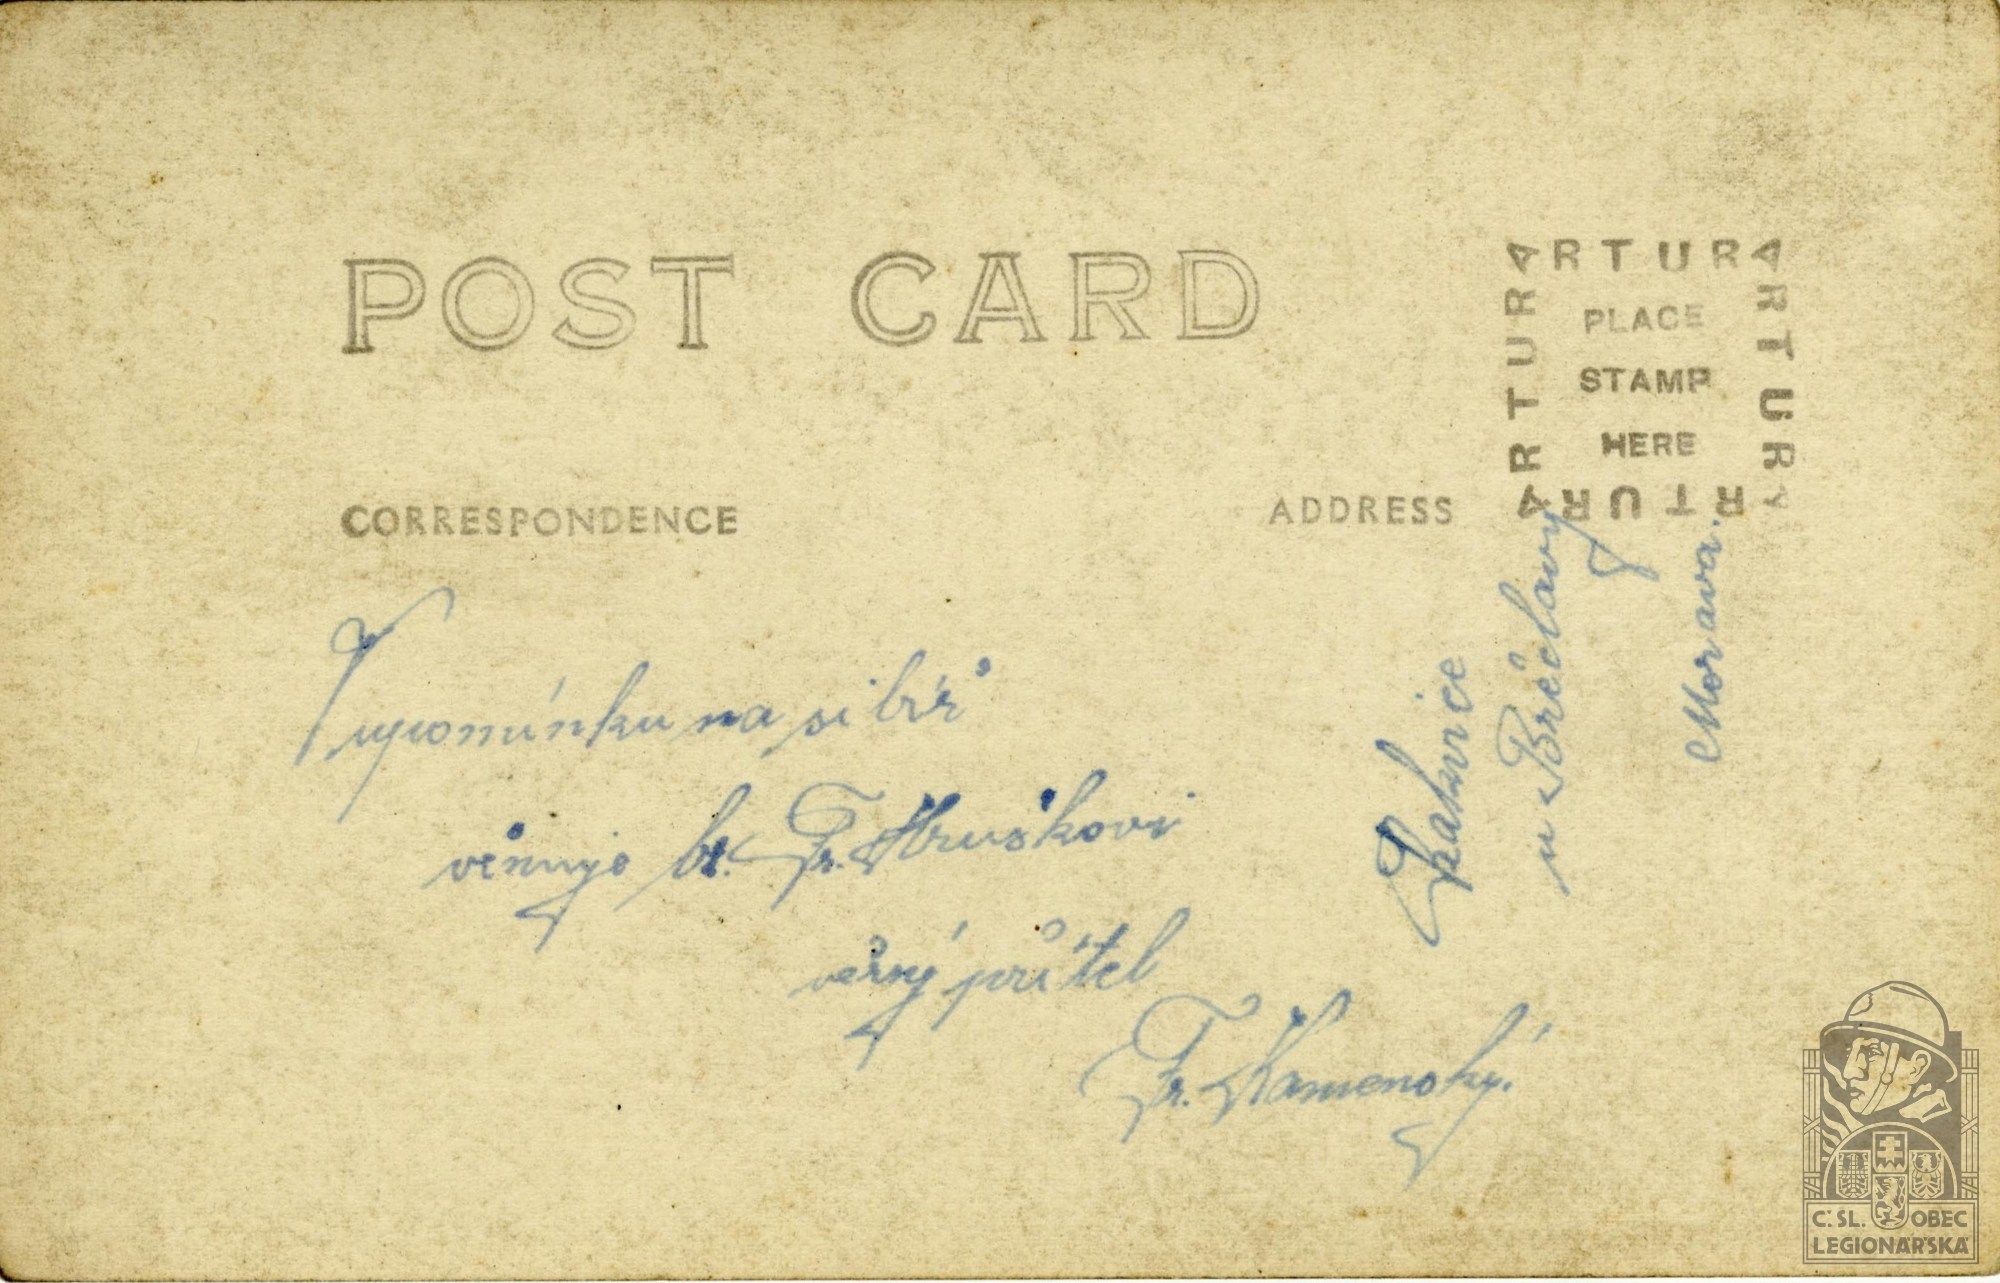 POST CARD
ARTURA
ARTURA
ARTURA
ARTURA
PLACE
STAMP
HERE
CORRESPONDENCE
ADDRESS
Vzpomínku na sibiř
věnuje br. Fr. Hruškovi
věrný přítel
Fr. Kamenský.
Zakvice
u Břeclavy
Morava.
Č. SL. OBEC
LEGIONÁŘSKÁ